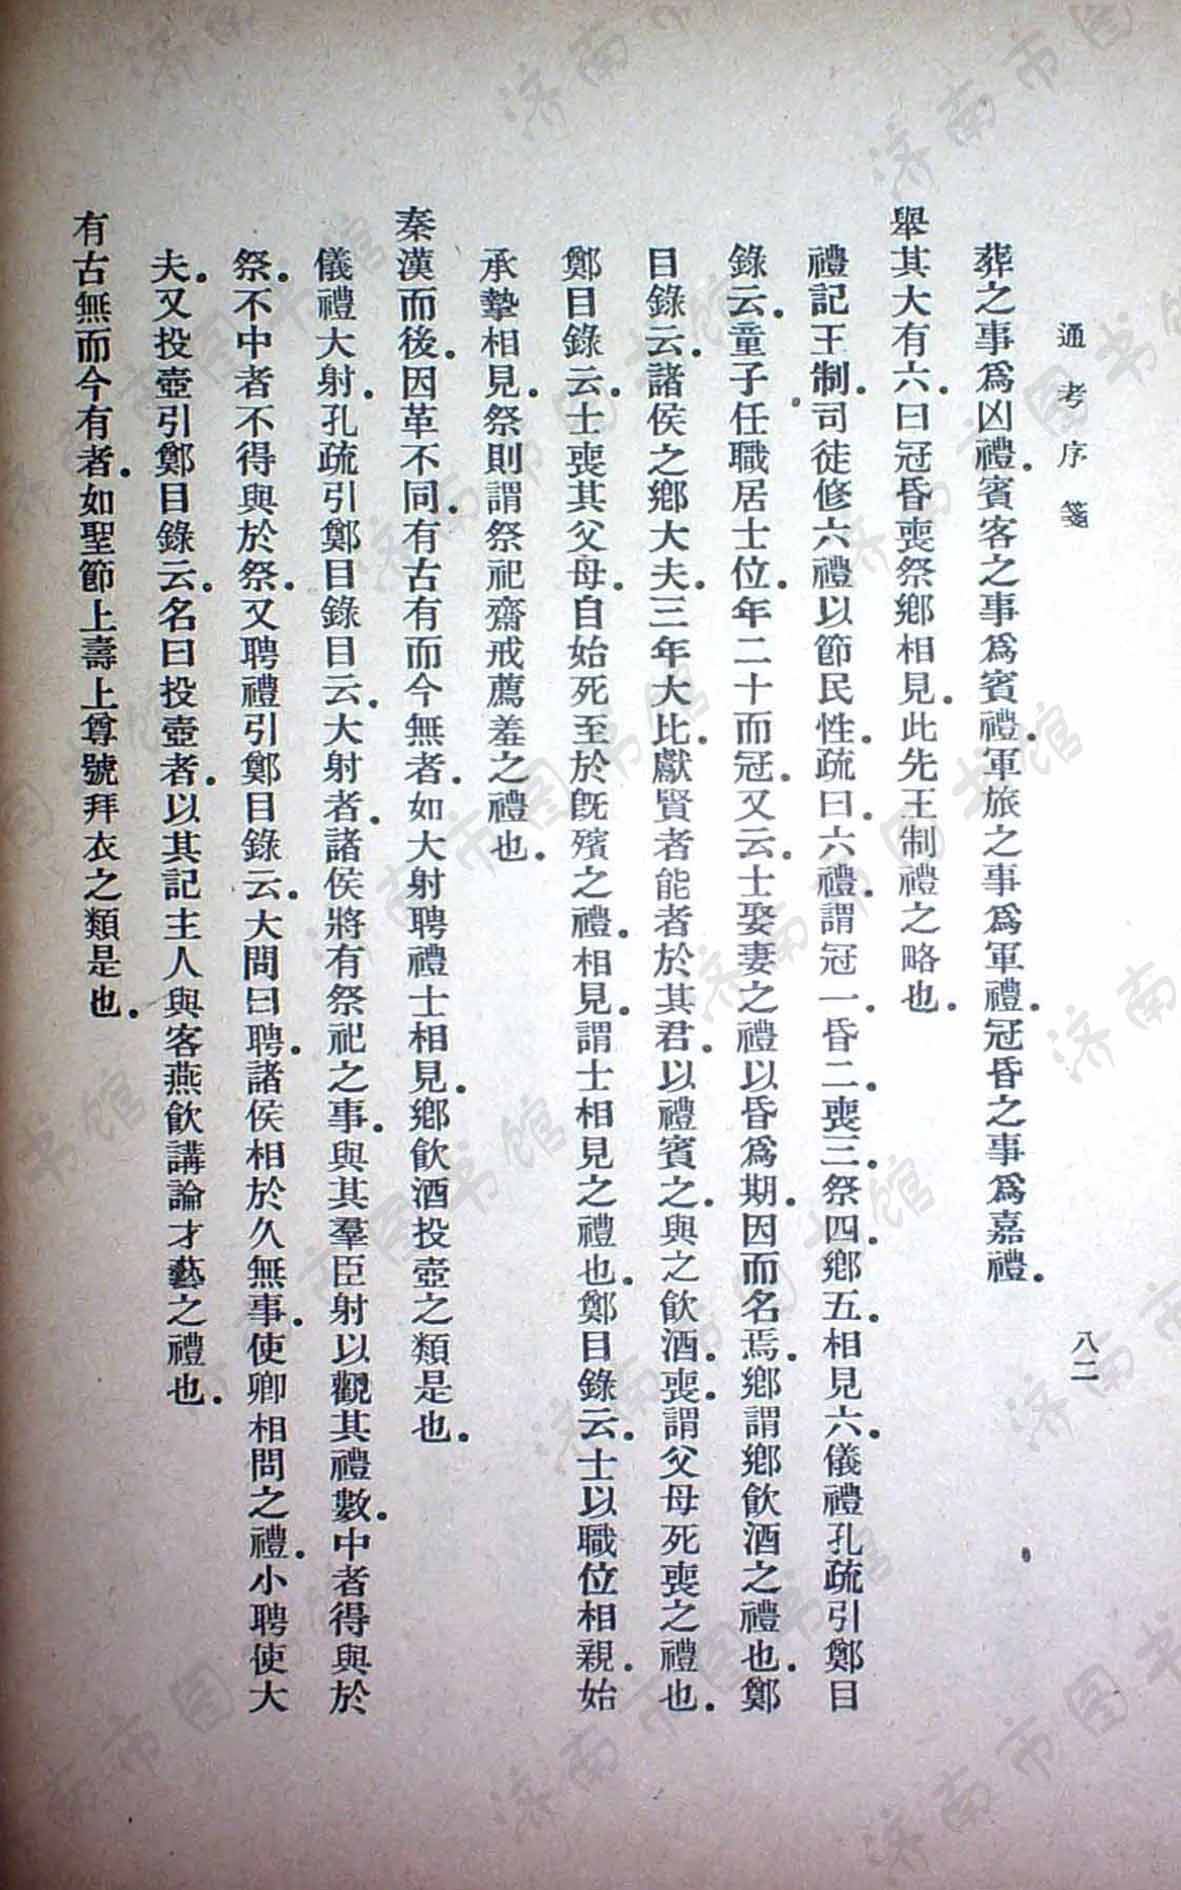 通考序箋
八二
葬之事爲凶禮。賓客之事爲賓禮。軍旅之事爲軍禮。冠昏之事爲嘉禮。
舉其大有六。曰冠昏喪祭鄉相見。此先王制禮之略也。
禮記王制。司徒修六禮以節民性。疏曰。六禮。謂冠一。昏二。喪三。祭四。鄉五。相見六。儀禮孔疏引鄭目
錄云。童子任職居士位。年二十而冠。又云。士娶妻之禮以昏爲期。因而名焉。鄉謂鄉飲酒之禮也。鄭
目錄云。諸侯之鄉大夫。三年大比。獻賢者能者於其君。以禮賓之。與之飲酒。喪。謂父母死喪之禮也。
鄭目錄云。士喪其父母。自始死至於旣殯之禮。相見。謂士相見之禮也。鄭目錄云。士以職位相親。始
承摯相見。祭則謂祭祀齋戒薦羞之禮也。
秦漢而後。因革不同。有古有而今無者。如大射聘禮士相見。鄉飲酒投壺之類是也。
儀禮大射。孔疏引鄭目錄目云。大射者。諸侯將有祭祀之事。與其羣臣射以觀其禮數。中者得與於
祭。不中者不得與於祭。又聘禮引鄭目錄云。大問曰聘。諸侯相於久無事。使卿相問之禮。小聘使大
夫。又投壺引鄭目錄云。名曰投壺者。以其記主人與客燕飲講論才藝之禮也。
有古無而今有者。如聖節上壽上尊號拜衣之類是也。
济南市图书馆